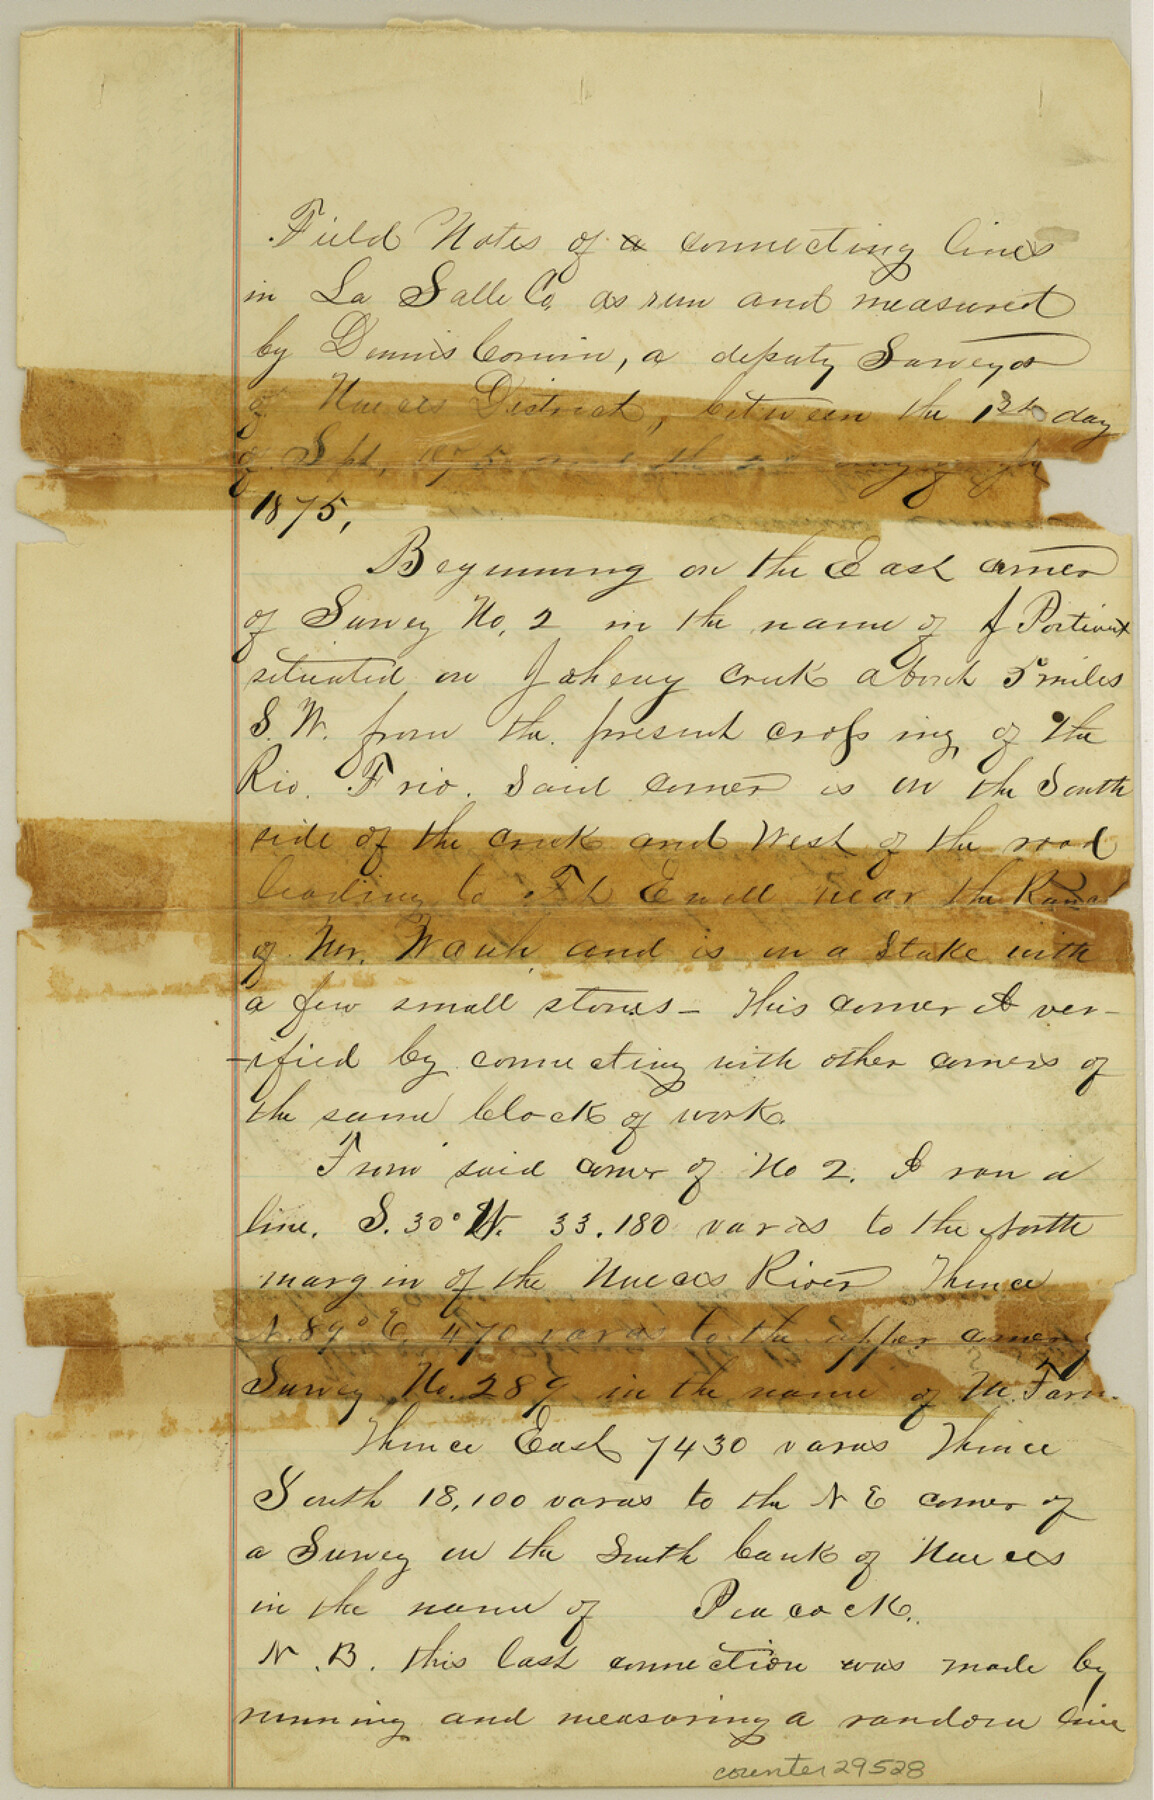 Field Notes of a connecting lines
in La Salle Co. as run and measured
by Dennis Corwin, a deputy Surveyor
of Nueces District, between the day
of Sept, 1875 and the
1875,
Beginning on the East corner
of Survey No. 2 in the name of
situated on creek about 5 miles
S. W. from the present crossing of the
Rio Frio. Said corner is on the South
side of the creek and West of the road
leading to Ft Ewell near the
of Mr. and is on a Stake with
a few small stones – This corner I ver-
-ified by connecting with other corners of
the same block of work.
From said corner of No 2. I ran a
line. S. 30° W. 33.180 varas to the North
margin of the Nueces River Thence
N. 89° E. 470 varas to the upper corner
Survey No. 289 in the name of M.
Thence East 7430 varas Thence
South 18,100 varas to the N E corner of
a Survey on the South bank of Nueces
in the name of Peacock.
N. B. this last connection was made by
running and measuring a random line
counter 29528